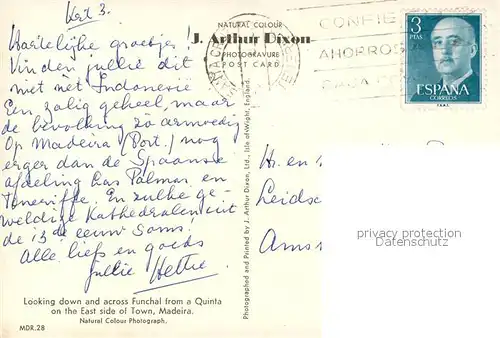 Krt 3.
Hartelijke groetjes!
Vinden jullie dit
niet net Indonesie
Een zalig geheel, maar
de bevolking zo armoedig
Op Madeira (Port.) nog
erger dan de Spaanse
afdeling Las Palmas en
Teneriffe. En zulke ge-
weldige Kathedralen uit
de 15de eeuw soms!
Alle liefs en goeds
jullie Hettie
Looking down and across Funchal from a Quinta
on the East side of Town, Madeira.
Natural Colour Photograph.
MDR.28
NATURAL COLOUR
J. Arthur Dixon
PHOTOGRAVURE
POST CARD
Photographed and Printed by J. Arthur Dixon, Ltd., Isle of Wight, England.
CONFIE
AHORROS
3
PTAS
ESPAÑA
CORREOS
H. en
Leidsc
Ams
permission/Privatsphäre
Datenschutz